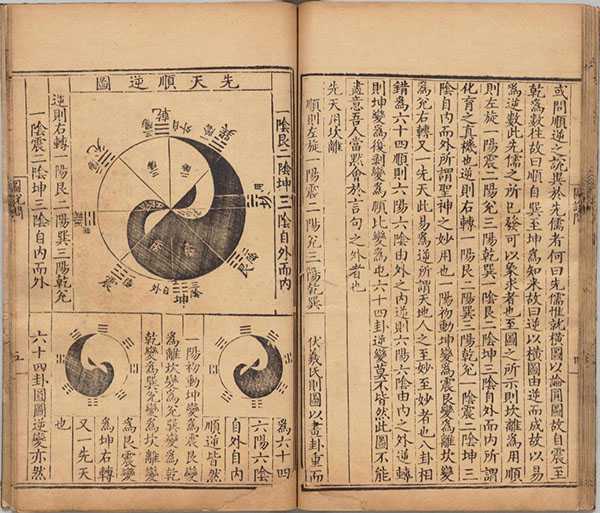 或問順逆之説異於先儒者何曰先儒惟就橫圖以論圓圖故自震至
乾為數往故曰順自巽至坤為知來故曰逆以橫圖由逆而成故以易
為逆數此先儒之所已發可以象求者也至圖之所示則坎離為用順
則左旋一陽震二陽兌三陽乾巽一陰艮二陰坤三陰自外而內所謂
化育之真機也逆則右轉一陽艮二陽巽三陽乾兌一陰震二陰坤三
陰自內而外所謂聖神之妙用也一陽初動坤變為震艮變為離坎變
為兌右轉又一先天此易為逆所謂天地人之至妙至妙者也八卦相
錯為六十四順則六陽六陰由外之內逆則六陽六陰由內之外逆轉
則坤變為復剝變為頤比變為屯六十四卦逆變莫不皆然此圖不能
盡意吾人當默會於言句之外者也
先天用坎離
順則左旋一陽震二陽兌三陽乾巽
伏羲氏則圖以畫卦重而
先天順逆圖
一陰艮二陰坤三陰自外而內
乾
巽
坎
艮
坤
震
兌
自外
自外
逆則右轉一陽艮二陽巽三陽乾兌
一陰震二陰坤三陰自內而外
為六十四
六陽六陰
自外自內
順逆皆然
一陽初動坤變為震艮變
為離坎變為兌巽變為乾
乾變為巽兌變為坎離變
為艮震變
為坤右轉
又一先天
也
六十四卦圓圖逆變亦然